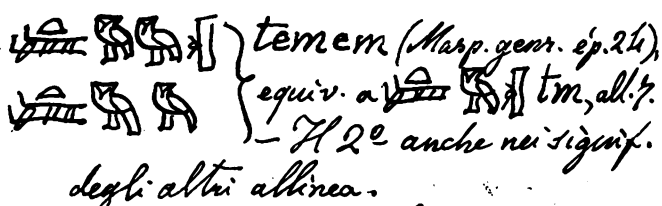 temem (Masp. genr. ép. 24),
equiv. a tm, all. 7.
– Il 2º anche nei signif.
degli altri allinea.